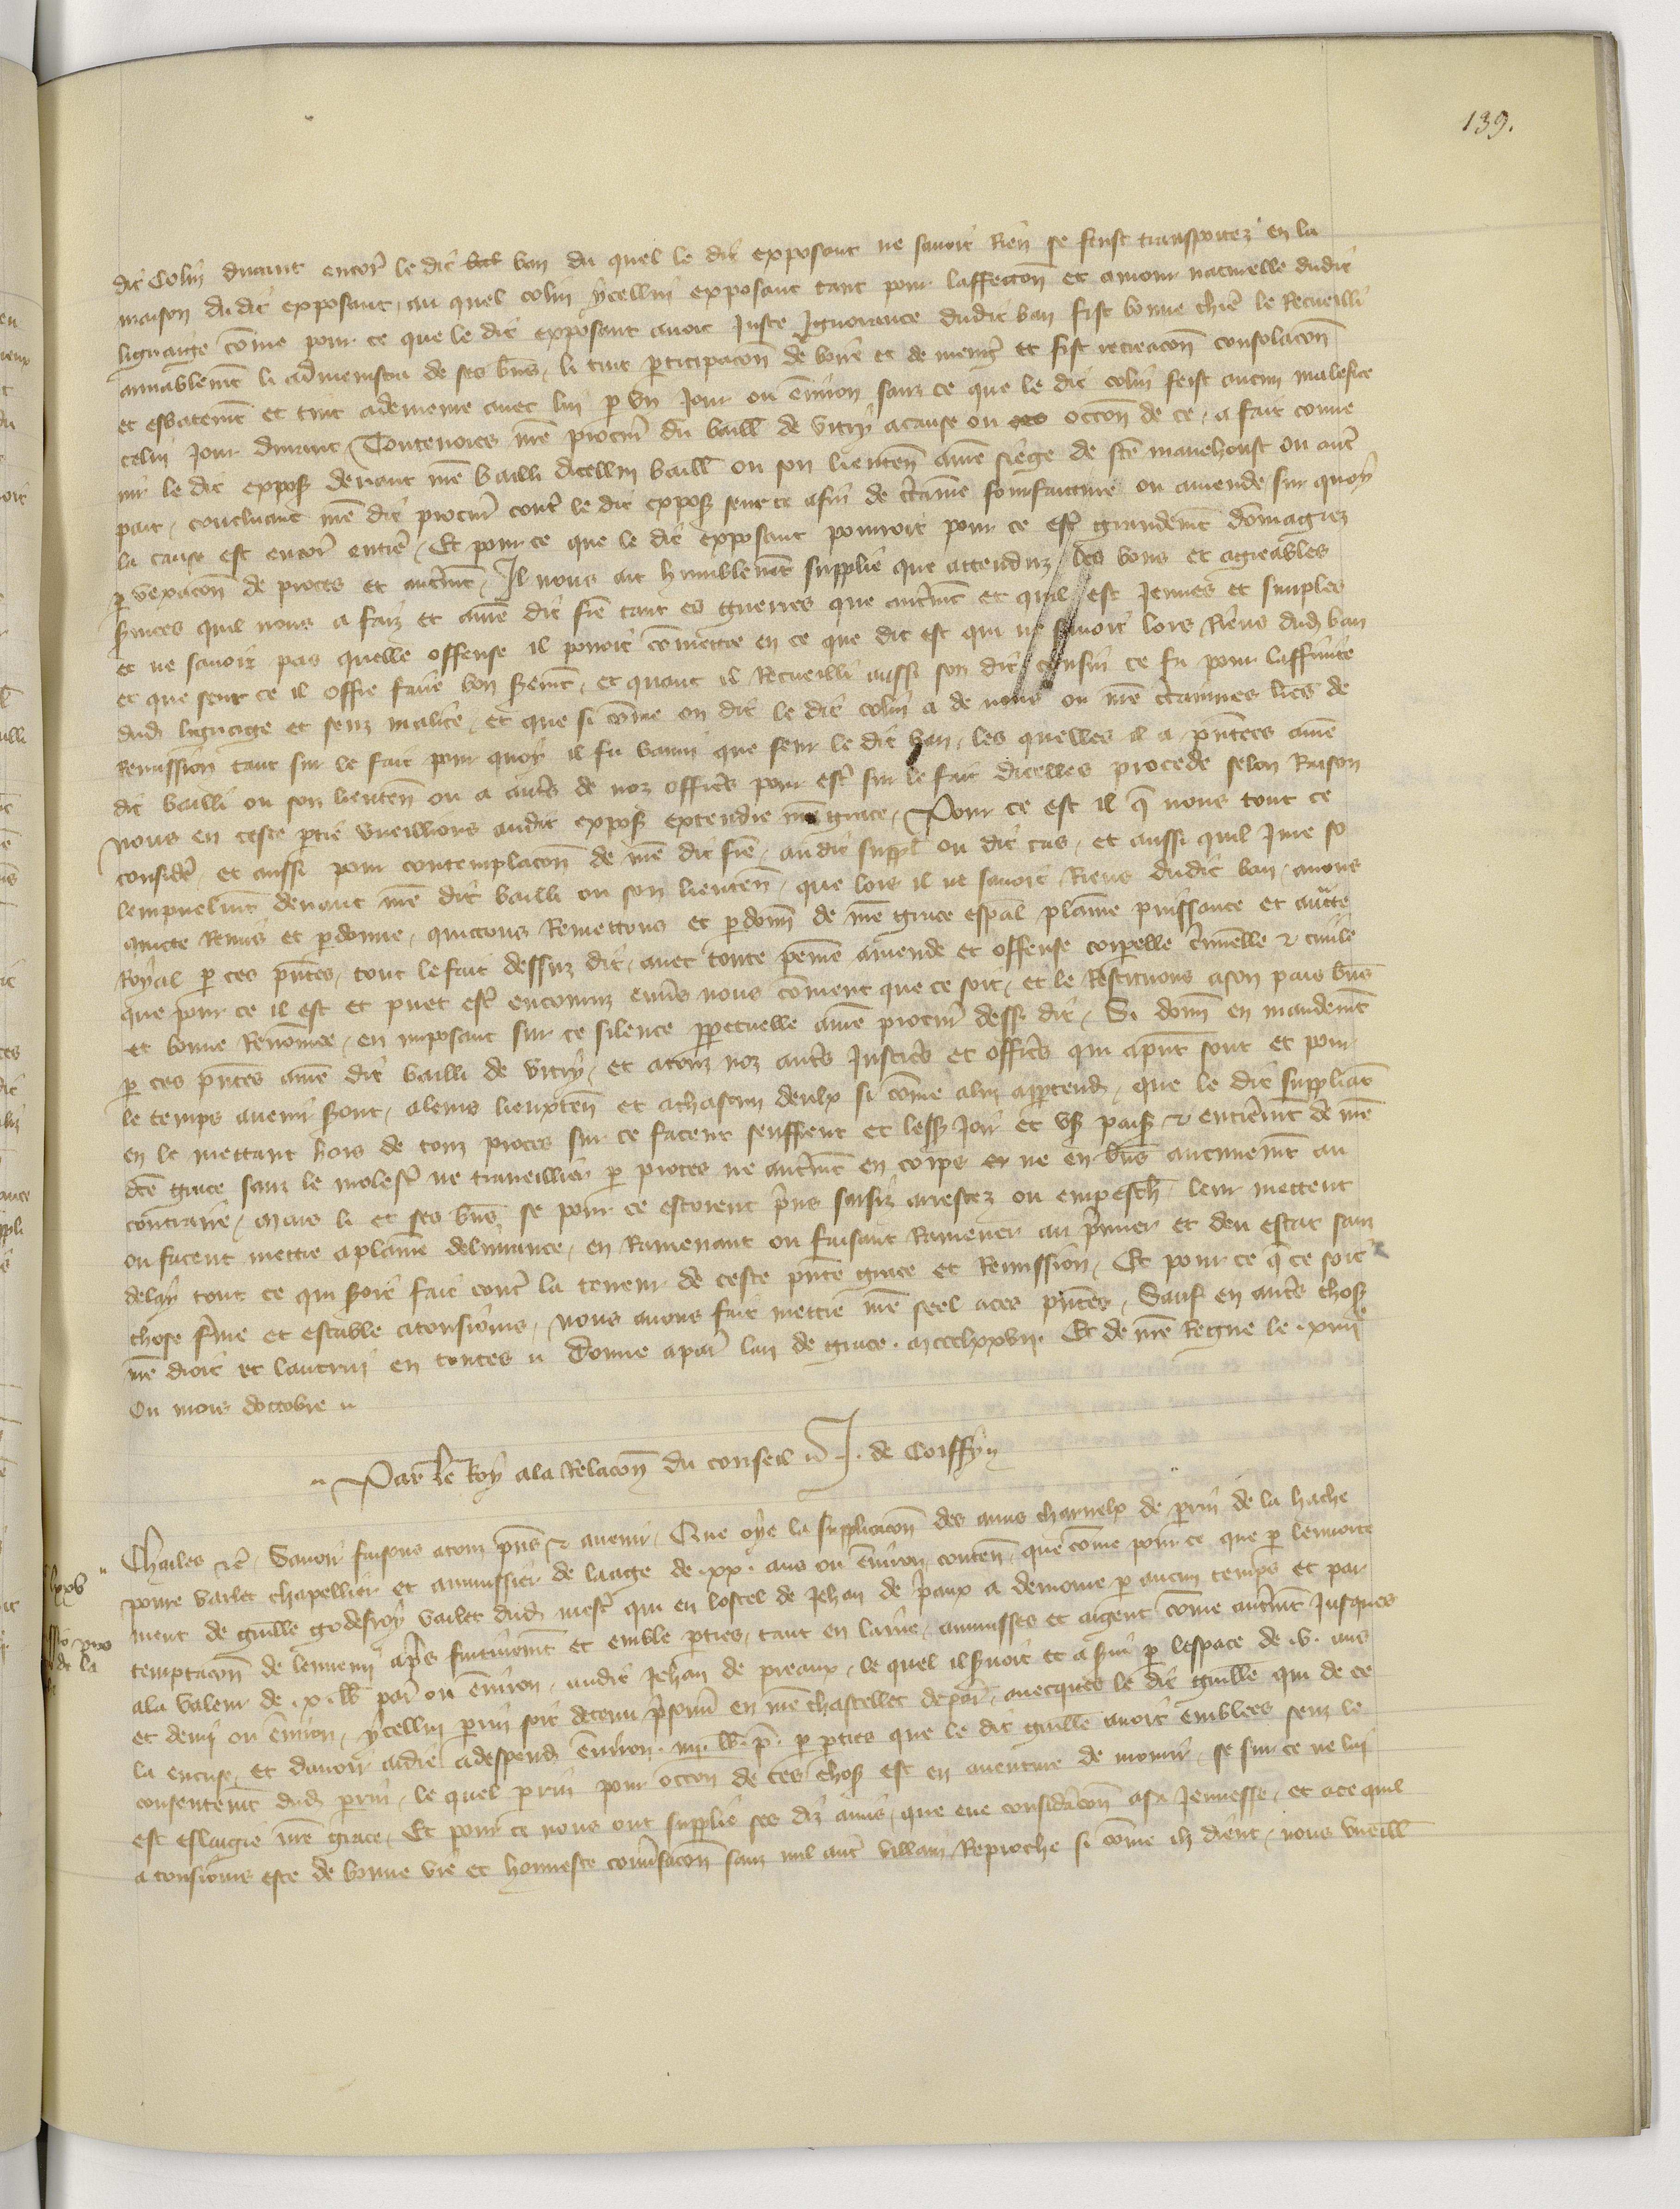 139.
dit Colin durant encor le dit ban du quel le dit exposant ne savoit Rien se feust transportez en la
maison du dit exposant, au quel colin ycellui exposant tant pour laffeccon et amour naturelle dudit
lignaige come pour ce que le dit exposant avoit Juste Jgnorance dudit ban fist bonne chiere le Recueilli
amiablemt li admenistra de ses bns, li tint pticipacon de boire et de mengr et fist recreacon consolacon
et esbatemt et tint ademeure avec lui p un Jour ou environ sanz ce que le dit colin feist aucun malefice
celui Jour durant, Toutevoies nre procur du baill de vitry acause ou occon de ce, a fait conve
nir le dit expos devant nre bailli dicellui baill ou son lieuten a nre siege de ste manehoust ou autre
part, concluant nre dit procur contre le dit expos sent ce afin de ctaine fourfaitture ou amende sur quoy
la cause est encor entiere, Et pour ce que le dit exposant pourroit pour ce estre grandemt domagiez
p vexacon de proces et autremt, Il nous ait humblemt supplie que attenduz les bons et agreables
svices quil nous a faiz et a nre dit fre tant es guerres que autremt et quil est Jeunes et simples
et ne savoit pas quelle offense il povoit comettre en ce que dit est qui ne savoit lors Riens dud ban
et que sent ce il offre faire bon serremt, et quant il Recueilli aussi son dit cousin ce fu pour laffinite
dud lignage et senz malice, et que si come on dit le dit colin a de nous ou nre ctaines lres de
Remission tant sur le fait pour quoy il fu banni que sur le dit ban, les quelles il a pntees a nre
dit bailli ou son lieuten ou a autres de noz officrs pour estre sur le fait dicelles procede selon Raison
nous en ceste ptie vueillions audit expos extendre nre grace, Pour ce est il q nous tout ce
considere, et aussi pour contemplacon de nre dit fre, audit suppl ou dit cas, et aussi quil Jure so
lempnelmt devant nre dit bailli ou son lieuten, que lors il ne savoit Riens dudit ban, avons
quitte Remis et pdonne, quittons Remettons et pdonn de nre grace espal plaine puissance et autte
Royal p ces pntes, tout le fait dessuz dit, avec toute peine amende et offense corpelle criminelle & civile
que pour ce il est et puet estre encouru envers nous coment que ce soit, et le Restituons a son pais bns
et bonne Renomee, en imposant sur ce silence ppetuelle a nre procur dessus dit, Si donn en mandemt
p ces pntes a nre dit bailli de vitry, et a touz noz autres Justicrs et officrs qui apnt sont et pour
le temps avenir seront, aleurs lieuxten et achascun deulx si come a lui apptendra, que le dit suppliant
en le mettant hors de touz proces sur ce facent seuffrent et less Joir et us pais & entieremt de nre
dce grace sanz le molestr ne traveillier p proces ne autremt en corps ne en bns aucunemt au
contraire, Mais li et ses bns, se pour ce estoient prins saisiz arrestez ou empesch, leur mettent
ou facent mettre a plaine delivrance, en Ramenant ou faisant Ramener au primer et deu estat sanz
delay tout ce qui seroit fait contre la teneur de ceste pnte grace et Remission, Et pour ce q ce soit
chose ferme et estable atousiours, nous avons fait mettre nre seel aces pntes, Sauf en autres choses
nre droit et lautrui en toutes Donne a par lan de grace mccclxxvii Et de nre Regne le xiiiie
Ou mois doctobre
Par le Roy ala Relacon du conseil J. de Coiffy
Charles &c, Savoir faisons a touz pns & avenir, Que oye la supplicacon des amis charnelx de Perrin de la hache
povre varlet chapellier et aumussier de laage de xx ans ou environ, conten, que come pour ce que p lenorte
ment de guille godefroy varlet dud mestr qui en lostel de Jehan de preaux a demoure p aucun temps et par
temptacon de lennemi apres furtivemt et emble pties, tant en laine, aumusses et argent come autremt Jusques
ala valeur de x lb par ou environ, audit Jehan de preaux, le quel il servoit et a servi p lespace de v ans
et demi ou environ, ycellui perrin soit detenu prisonn en nre chastellet depar, avecques le dit guille qui de ce
la encuse, et davoir aidie adespendre environ iiii lb p p pties que le dit guille avoit emblees senz le
consentemt dud perrin, le quel perrin pour occon de ces choses est en aventure de mourir, se sur ce ne lui
est eslargie nre grace, Et pour ce nous ont supplie ses diz amis, que eue consideracon asa Jeunesse, et ace quil
a tousiours este de bonne vie et honneste conversacon sanz nul autre villain Reproche si come ilz dient, nous vueill